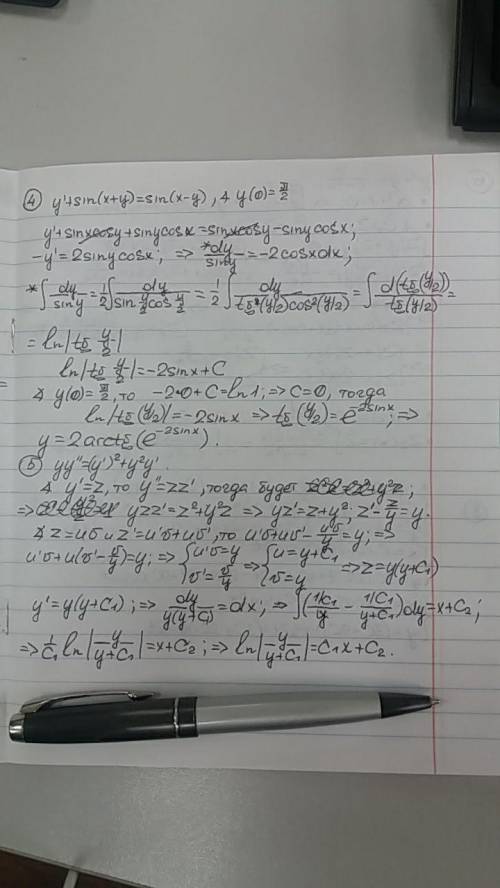 ④ y'+sin(x+y)=sin(x-y), ∢ y(0)=π/2
y'+sinxcosy+sinycosx=sinxcosy-sinycosx;
-y'=2sinycosx; ⇒ *dy/siny=-2cosxdx;
*∫dy/siny=1/2∫dy/(sin y/2 cos y/2)=1/2∫dy/(tg(y/2)cos²(y/2))=∫d(tg(y/2))/tg(y/2)=
=ln|tg y/2|
ln|tg y/2|=-2sinx+C
∢ y(0)=π/2, то -2·0+C=ln1; ⇒ C=0, тогда
ln|tg(y/2)|=-2sinx ⇒ tg(y/2)=e^(-2sinx); ⇒
y=2arctg(e^(-2sinx)).
⑤ yy''=(y')²+y²y'.
∢ y'=z, то y''=zz', тогда будет
⇒ yzz'=z²+y²z ⇒ yz'=z+y²; z'-z/y=y.
∢ z=uv и z'=u'v+uv', то u'v+uv'-uv/y=y; ⇒
u'v+u(v'-v/y)=y; ⇒ {u'v=y v'=v/y ⇒ {u=y+C₁ v=y ⇒ z=y(y+C₁)
y'=y(y+C₁); ⇒ dy/(y(y+C₁))=dx, ⇒ ∫((1/C₁)/y - (1/C₁)/(y+C₁))dy=x+C₂;
⇒ 1/C₁ ln|y/(y+C₁)|=x+C₂; ⇒ ln|y/(y+C₁)|=C₁x+C₂.